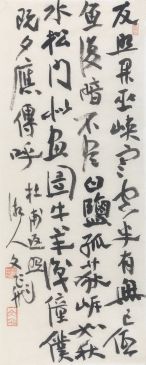 反照開巫峽寒空半有無已低
魚復暗不盡白鹽孤荻岸如秋
水松門似畫圖牛羊識僮僕
既夕應傳呼 杜甫返照